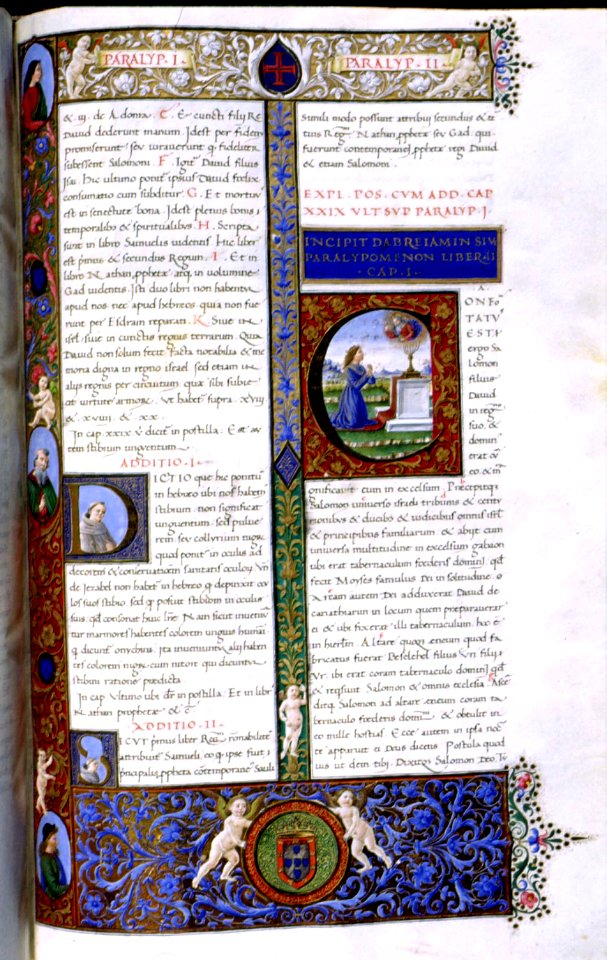 PARALYP · I ·
PARALYP · II
& iij. de Adonia. C. Et cuncti filij Re
David dederunt manum. Idest per fidem
promiserunt seu iuraverunt q fideliter
subessent Salomoni. F. Igit David filius
Isai. Hic ultimo ponit ipsius David
consumatio cum subditur. G. Et mortuus
est in senectute bona. Idest plenus bonis
temporalibus & spiritualibus. H. Scripta
sunt in libro Samuelis videntis. Hic liber
est primus & secundus Regum. I. Et in
libro Nathan prophetae atq in volumine
Gad videntis. Isti duo libri non habentur
apud nos nec apud hebreos quia non fue
runt per Esdram reparati. K. Sive in
isrl. sive in cunctis regnis terrarum. Quia
David non solum fecit facta notabilia & me
moria digna in regno israel sed etiam in
alijs regnis per circuitum quae sibi subie
cit virtute armorum. Ut habetur supra. xviij
& xviiij & xx.
In cap. xxix v dicit in postilla. Est au
tem stibium unguentum.
ADDITIO · I ·
DICTIO que hic ponitur
in hebreo ubi nos habem
stibium. non significat
unguentum. sed pulve
rem seu collyrium nigrum
quod ponitur in oculis ad
decorem & conservationem sanitatis oculorum. Un
de Iezabel non habetur in hebreo q depinxit ocu
los suos stibio sed q posuit stibium in oculis
suis.
tur marmores habentes colorem unguis humani
q dicuntur onychini. ita inveniuntur alij haben
tes colorem nigrum cum nitore qui dicuntur
stibini ratione predicta.
In cap. ultimo ubi dr in postilla. Et in libro
Nathan prophetae & c
ADDITIO · II ·
SICUT primus liber Regum rationabiliter
attribuitur Samueli. eo q ipse fuit
principalis propheta contemporaneus Sauli
Simili modo possunt attribui secundus & ter
tius Regum Nathan prophete seu Gad. qui
fuerunt contemporanei prophete regi David
& etiam Salomoni.
EXPL. POS. CVM ADD. CAP.
XXIX VLT SVP PARALYP · I ·
INCIPIT DABREIAMIN SIVE
PARALYPOMENON LIBER · II
· CAP · I ·
CONFOR
TATV
EST
ergo Sa
lomon
filius
David
in regno
suo. &
dominus
erat cum
eo. & m
gnificavit eum in excelsum. Precepitque
Salomon universo israeli tribunis & centu
rionibus & ducibus & iudicibus omnis isrl
& principibus familiarum & abijt cum
universa multitudine in excelsum gabaon
ubi erat tabernaculum foederis domini quod
fecit Moyses famulus Dei in solitudine.
Arcam autem Dei adduxerat David de
cariathiarim in locum quem preparaverat
ei & ubi fixerat illi tabernaculum. hoc e
in hierlm. Altare quoque eneum quod fa
bricatus fuerat Beseleel filius Uri filij
Ur. ibi erat coram tabernaculo domini quod
& requisivit Salomon & omnis ecclesia. Ascen
ditque Salomon ad altare eneum coram ta
bernaculo foederis domini & obtulit in
eo mille hostias. Ecce autem in ipsa nocte
te apparuit ei Deus dicens. Postula quod
vis ut dem tibi. Dixitque Salomon Deo. Tu